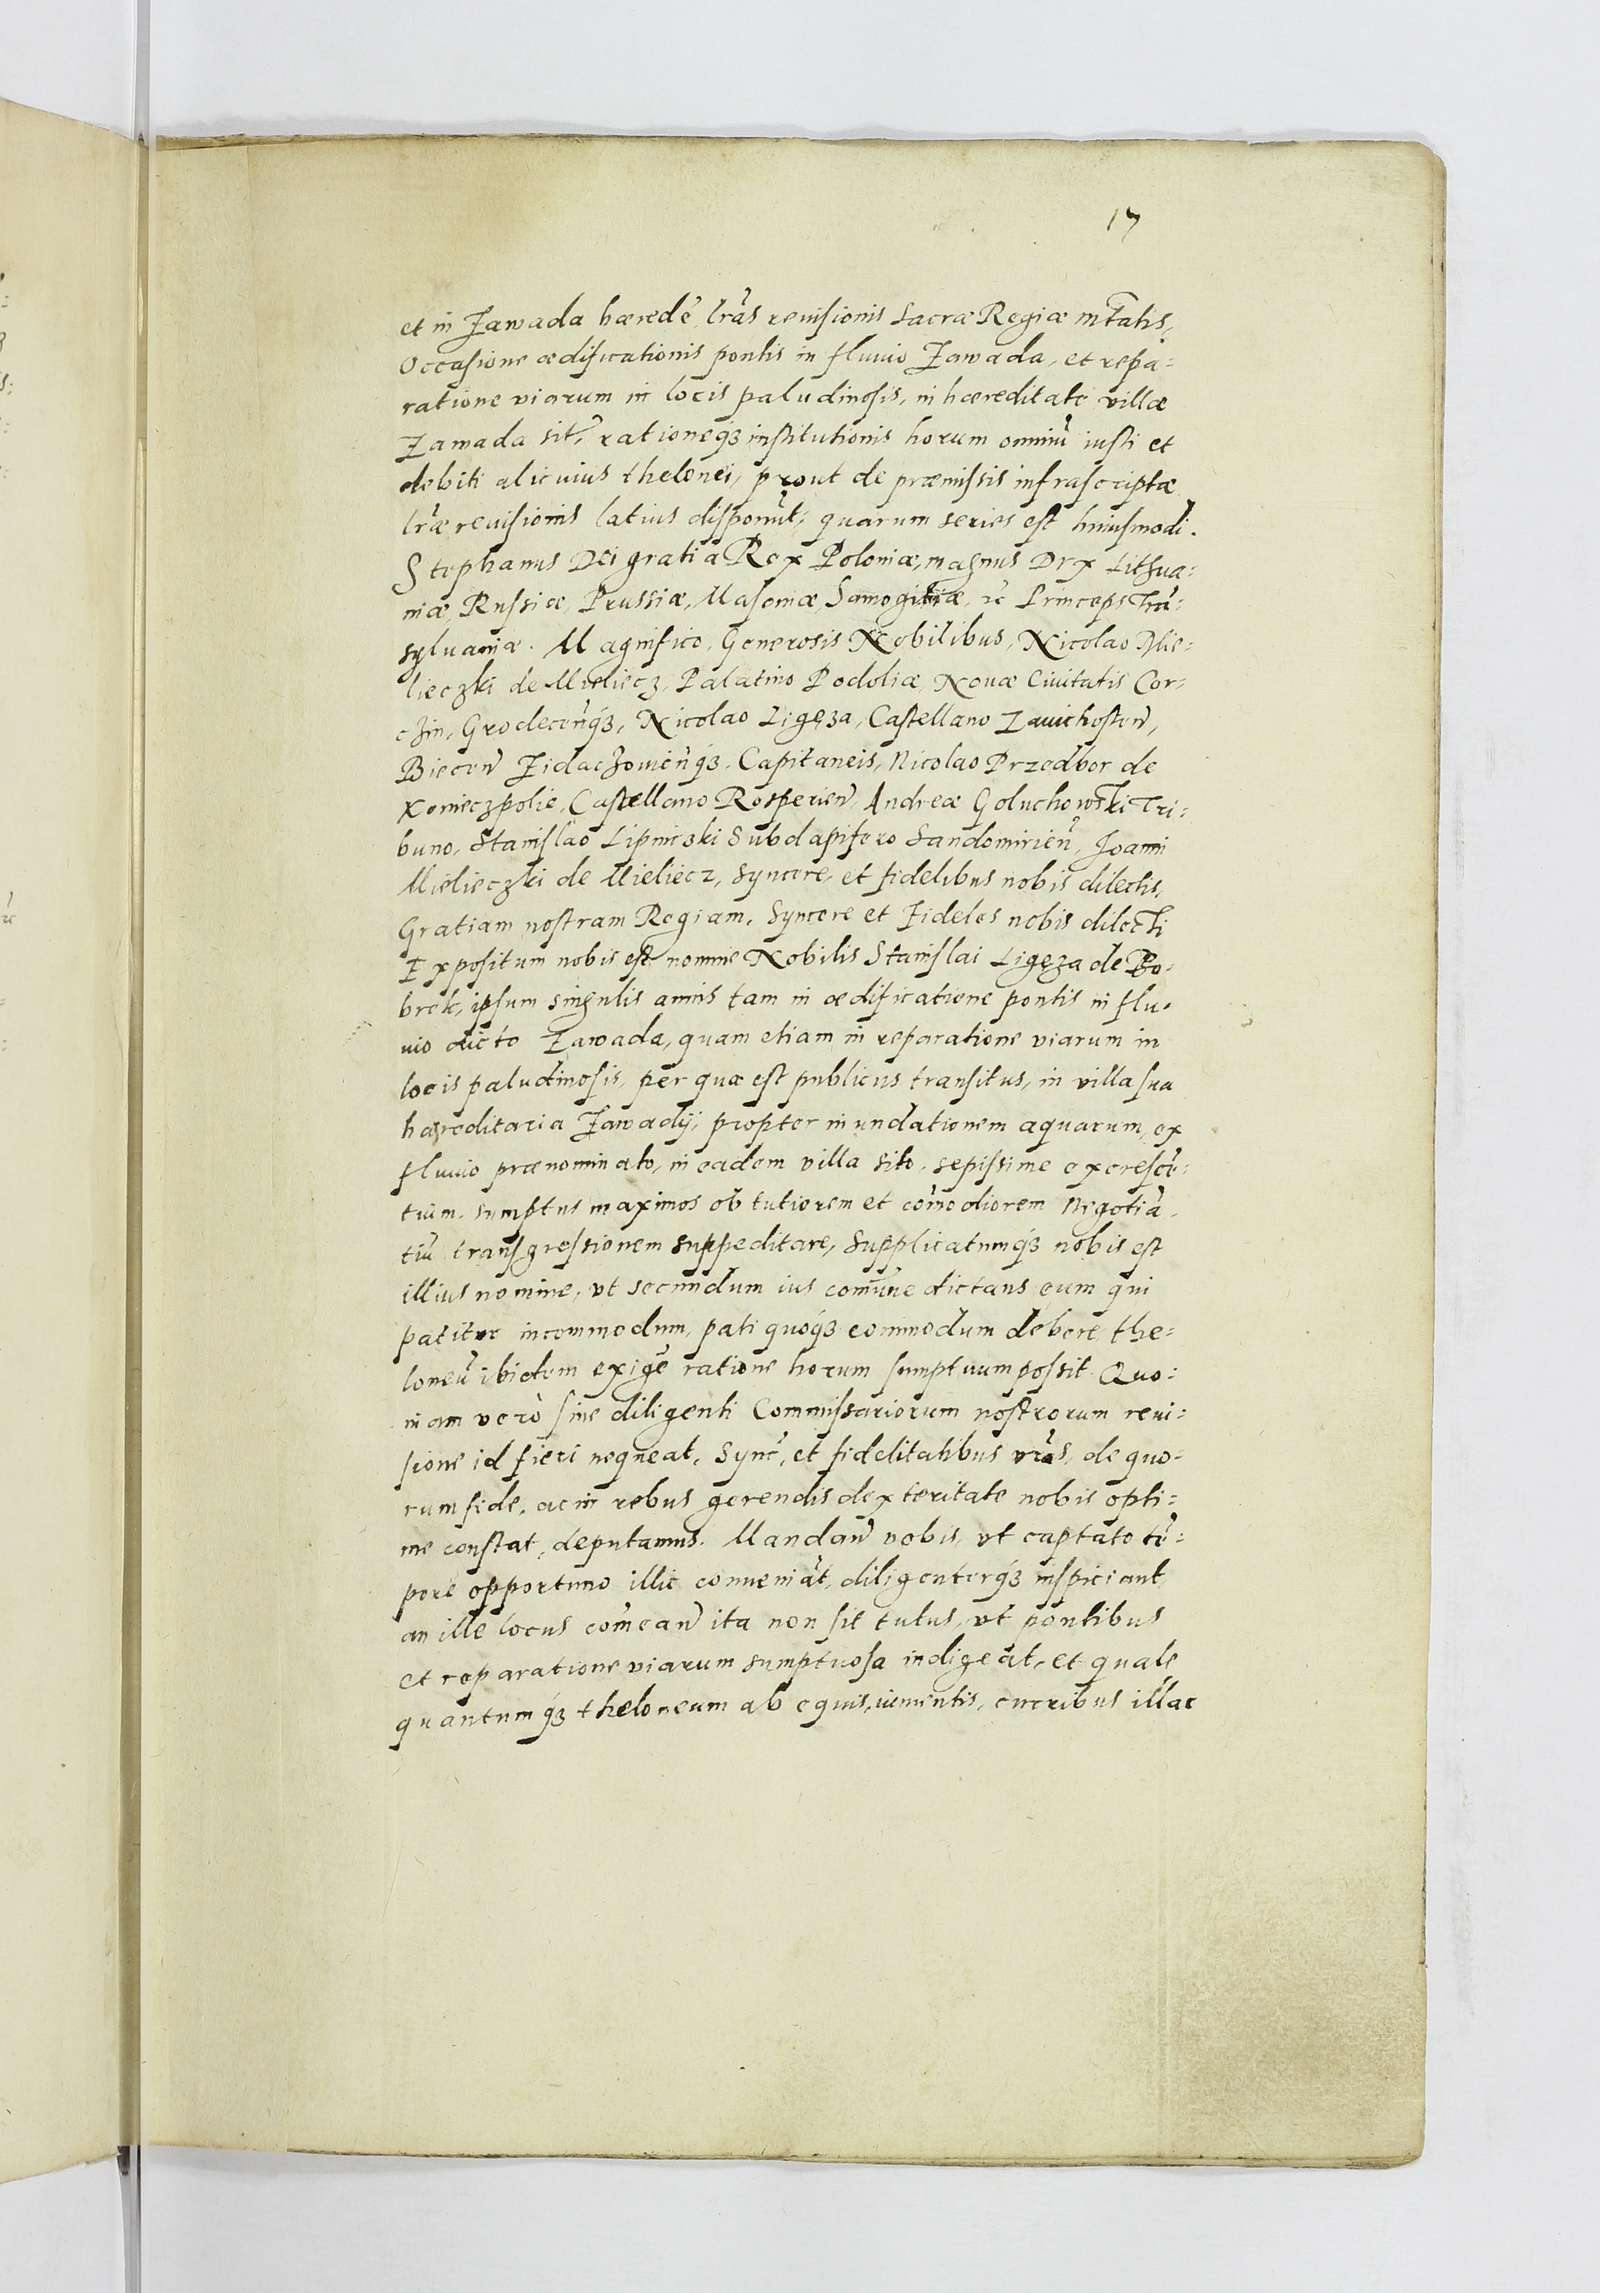 17
et in Zawada hæredē, lrãs reuisionis Sacræ Regiæ mtatis,
Occasione ædificationis pontis in fluuio Zawada, et repa=
ratione viarum in locis paludinosis, in hæreditate villæ
Zawada sit, rationeqꝫ institutionis horum omniũ iusti et
debiti alicuius thelonei, prout de præmissis infrascriptæ
lræ reuisionis latius disponũt, quarum series est huiusmodi.
Stephanus Dei gratia Rex Poloniæ, magnus Dux Lithua=
niæ, Russiæ, Prussiæ, Masoniæ, Samogitiæ, ꝛc Princeps Trã=
syluaniæ. Magnifico, Generosis Nobilibus, Nicolao Mie=
lieczki de Mieliecz, Palatino Podoliæ, Nouæ Ciuitatis Cor=
czin, Grodeceñqꝫ, Nicolao Ligęza, Castellano Zauichosteñ,
Bieceñ Zidaczouieñqꝫ. Capitaneis, Nicolao Przedbor de
Konieczpolie, Castellano Rosperieñ, Andreæ Goluchowski Tri=
buno, Stanislao Lipniczki Subdapifero Sandomirieñ, Joanni
Mielieczki de Mieliecz, Syncere, et fidelibus nobis dilectis,
Gratiam nostram Regiam, Syncere et Fideles nobis dilecti
Expositum nobis est nomine Nobilis Stanislai Ligęza de Bo=
brek, ipsum singulis annis tam in ædificatione pontis in flu=
uio dicto Zawada, quam etiam in reparatione viarum in
locis paludinosis, per quæ est publicus transitus, in villa sua
hæreditaria Zawadÿ, propter inundationem aquarum, ex
fluuio prænominato, in eadem villa sito, sepissime excrescẽ=
tium, sumptus maximos ob tutiorem et com̃odiorem Negotiã=
tiũ transgressionem suppeditare, Supplicatumqꝫ nobis est
illius nomine, vt secundum ius com̃une dictans eum qui
patitur incommodum, pati quoqꝫ commodum debere, the=
loneũ ibidem exigẽ ratione horum sumptuum possit. Quo=
niam verò sine diligenti Commissariorum nostrorum reui=
sione id fieri nequeat, Sync̃, et fidelitatibus vrãs, de quo=
rum fide, ac in rebus gerendis dexteritate nobis opti=
me constat, deputamus. Mandañ vobis, vt captato tẽ=
pore opportuno illic conueniãt, diligenterqꝫ inspiciant,
an ille locus com̃eañ ita non sit tutus, vt pontibus
et reparatione viarum sumptuosa indigeat, et quale
quantumqꝫ theloneum ab equis, iumentis, curribus illac